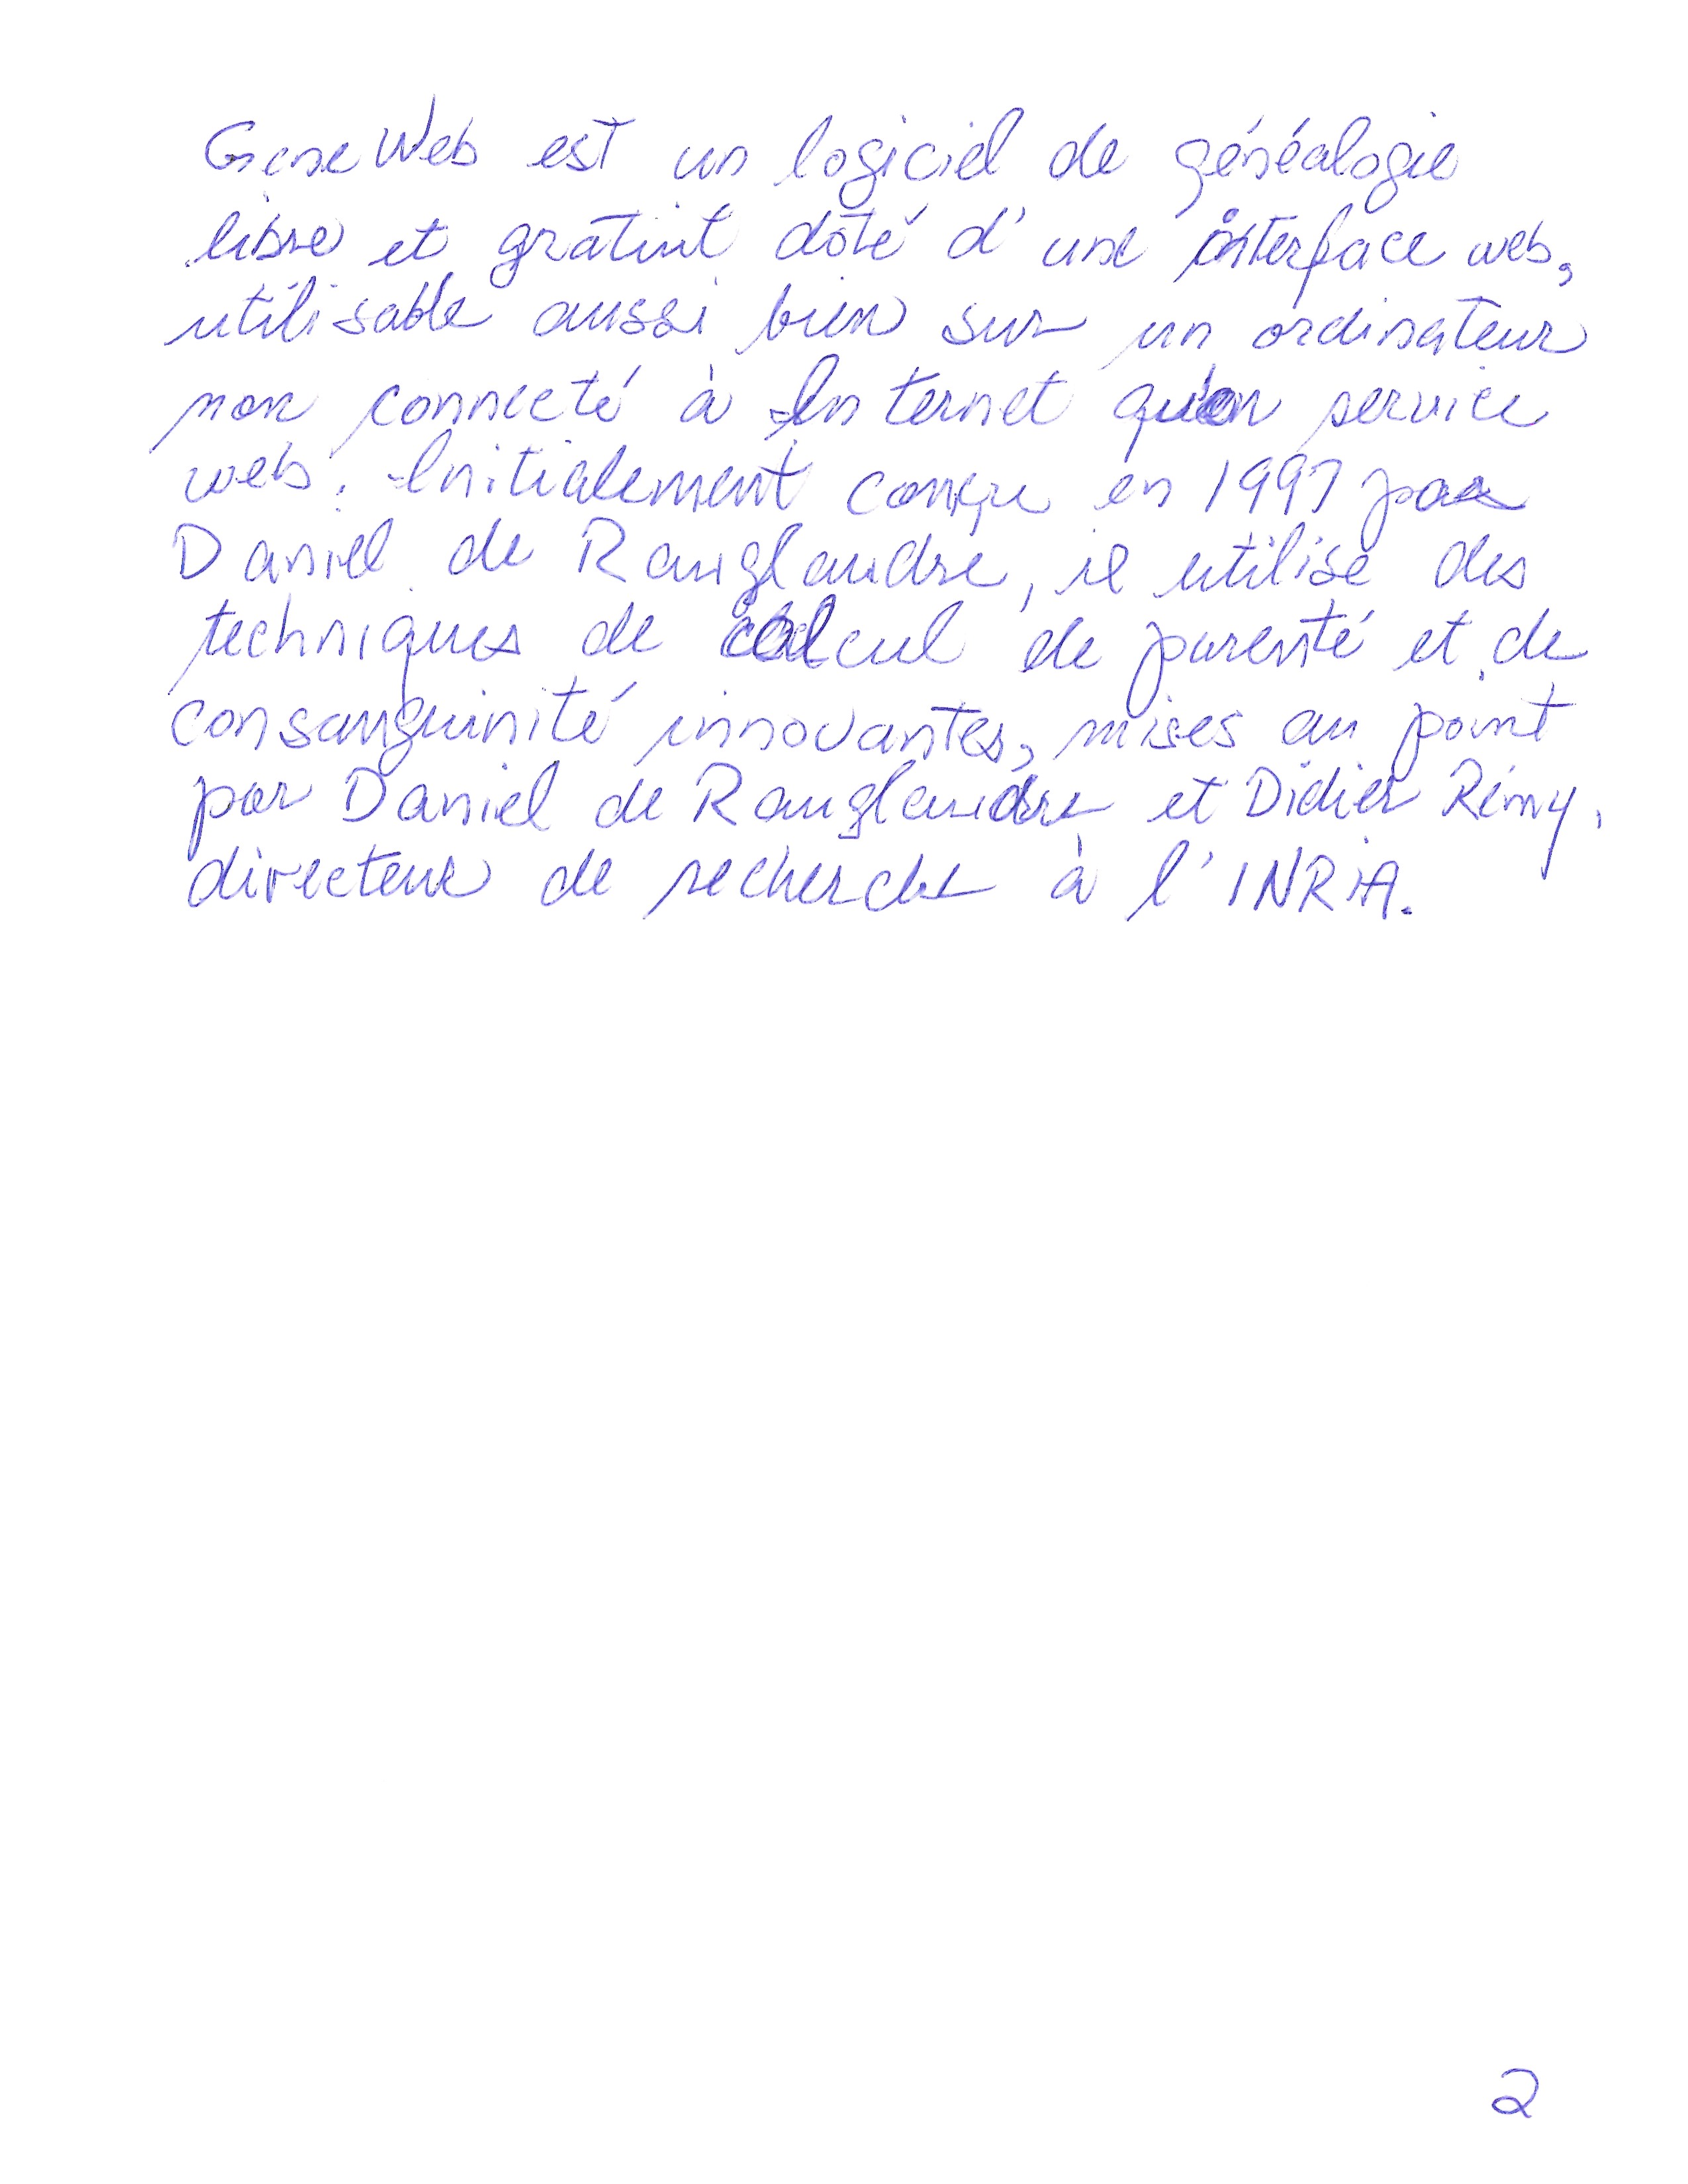 GeneWeb est un logiciel de généalogie
libre et gratuit doté d'une interface web,
utilisable aussi bien sur un ordinateur
non connecté à Internet qu'en service
web. Initialement conçu en 1997 par
Daniel de Rauglaudre, il utilise des
techniques de calcul de parenté et de
consanguinité innovantes, mises au point
par Daniel de Rauglaudre et Didier Rémy,
directeur de recherche à l'INRIA.
2